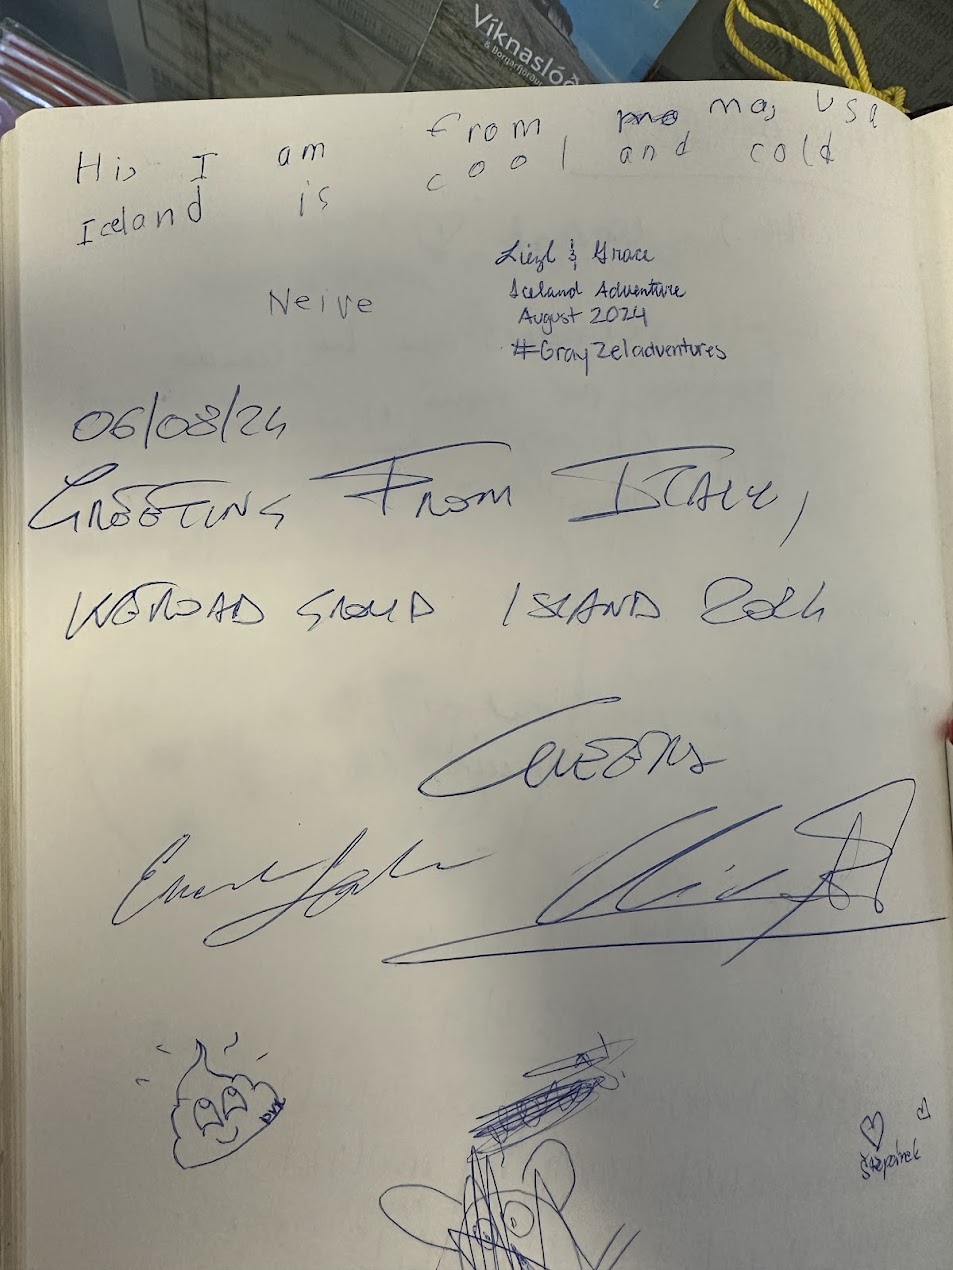 Víknaslóð
& Borgarfjörður
Hi, I am from ma, USa
Iceland is cool and cold
Neive
Liezl & Grace
Iceland Adventure
August 2024
#GrayZeladventures
06/08/24
GREETING FROM ITALY,
WEROAD GROUP ISLAND 2024
CHEERS
Štěpánek